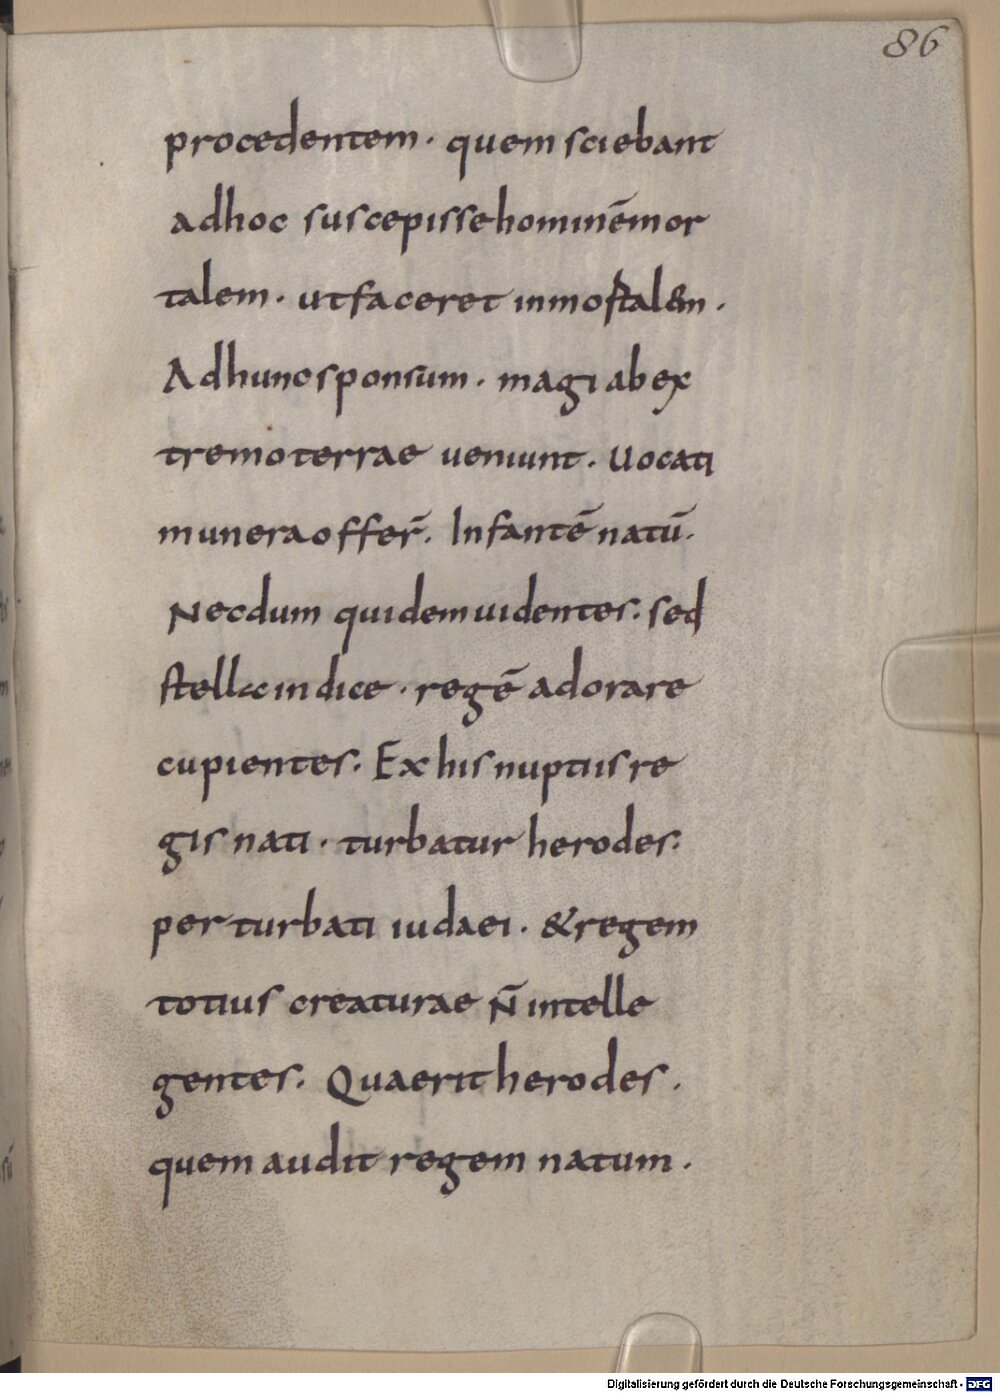 86
procedentem · quem sciebant
adhoc suscepisse hominēmor
talem · ut faceret inmortal&m ·
Adhunc sponsum · magi abex
tremo terrae ueniunt · Uocati
munera offer̄. Infantē natū·
Necdum quidem uidentes· sed
stella indice · regē adorare
cupientes· Ex his nuptiis re
gis nati · turbatur herodes·
perturbati iudaei · & regem
totius creaturae n̄ intelle
gentes· Quaerit herodes ·
quem audit regem natum ·
Digitalisierung gefördert durch die Deutsche Forschungsgemeinschaft - DFG